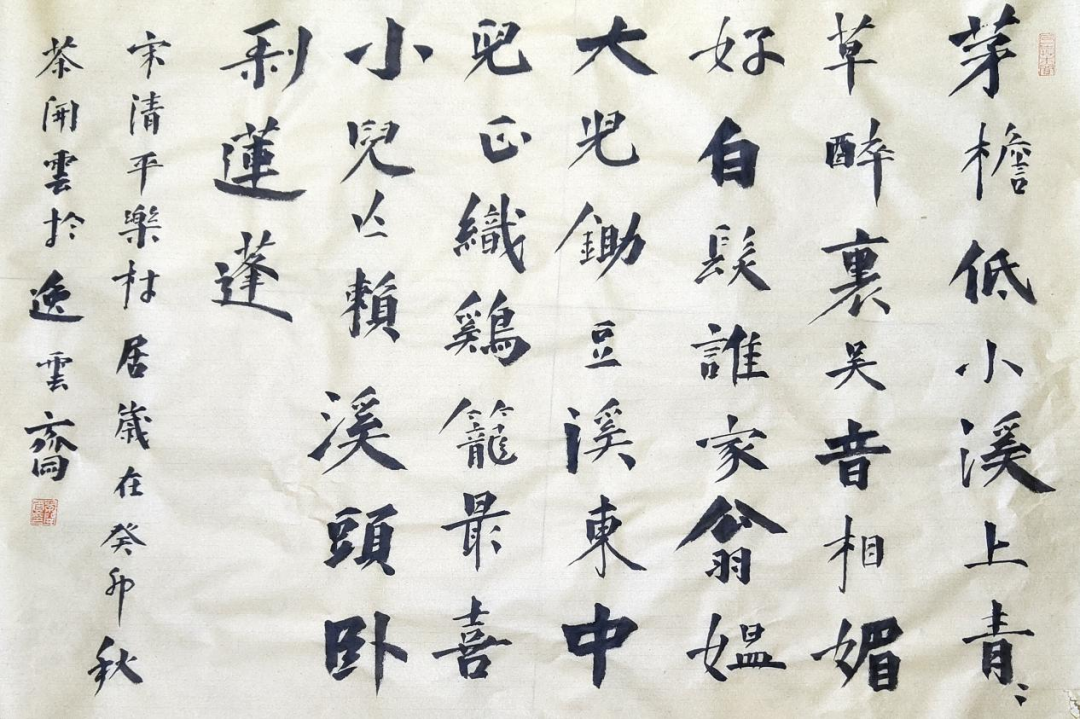 茅檐低小溪上青〻
草醉裏吴音相媚
好自髮誰家翁媪
大兒鋤豆溪東中
兒正織鷄籠最喜
小兒亡賴溪頭卧
剥蓮蓬
宋清平樂村居歲在癸卯秋
茶開雲於逸雲齋